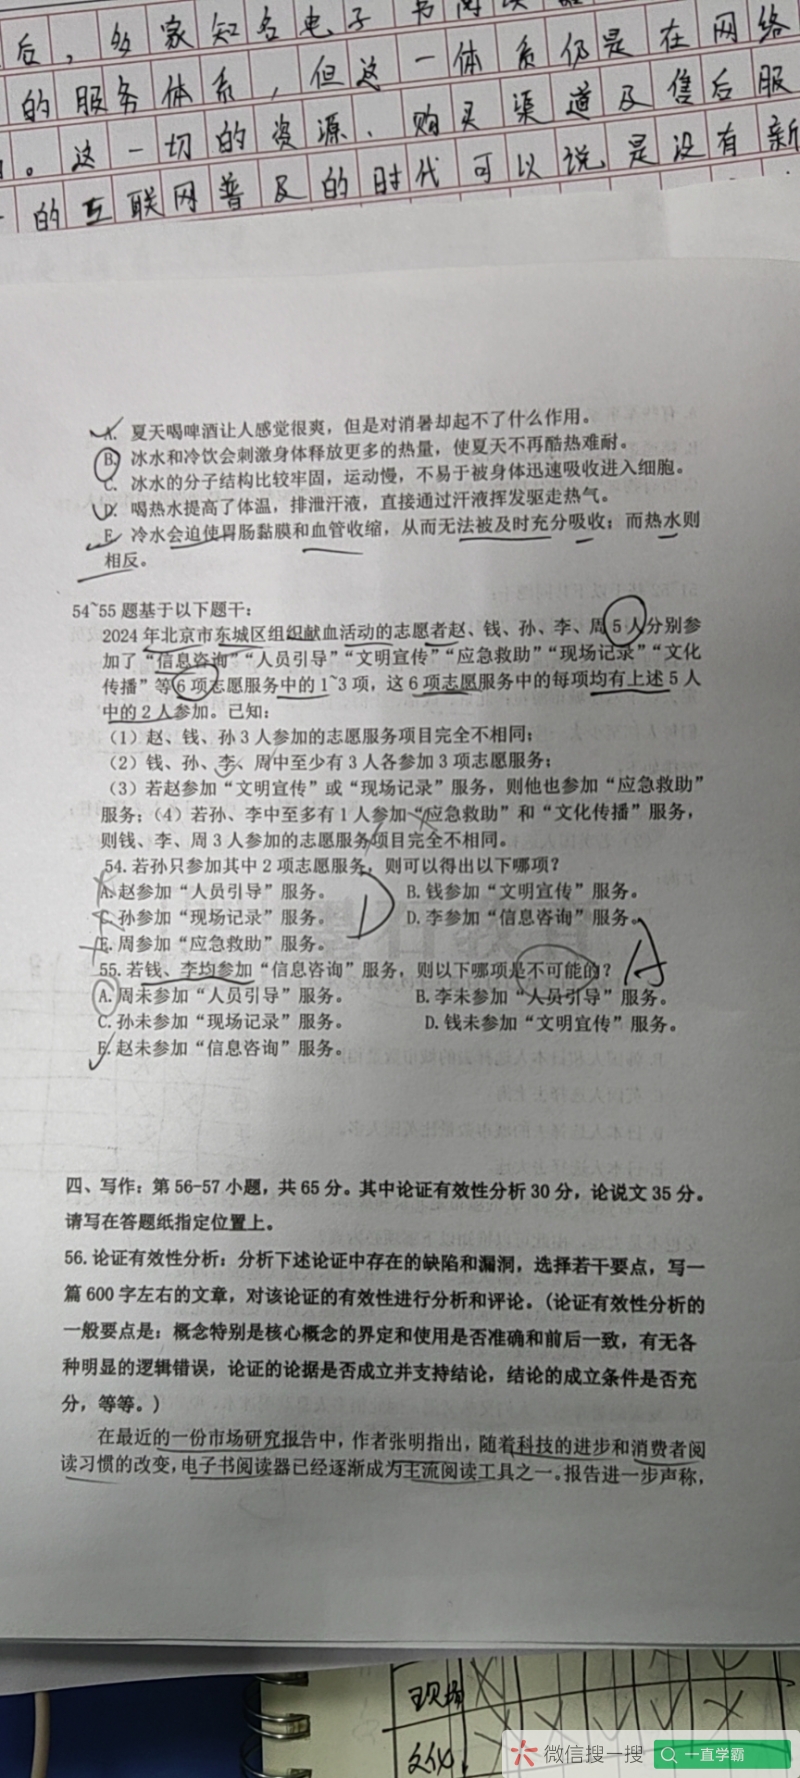 后，多家知名电子书阅读器
的服务体系，但这一体系仍是在网络
。这一切的资源、购买渠道及售后服
的互联网普及的时代可以说是没有新
A. 夏天喝啤酒让人感觉很爽，但是对消暑却起不了什么作用。
B. 冰水和冷饮会刺激身体释放更多的热量，使夏天不再酷热难耐。
C. 冰水的分子结构比较牢固，运动慢，不易于被身体迅速吸收进入细胞。
D. 喝热水提高了体温，排泄汗液，直接通过汗液挥发驱走热气。
E. 冷水会迫使胃肠黏膜和血管收缩，从而无法被及时充分吸收；而热水则
相反。
54~55 题基于以下题干：
2024 年北京市东城区组织献血活动的志愿者赵、钱、孙、李、周 5 人分别参
加了“信息咨询”“人员引导”“文明宣传”“应急救助”“现场记录”“文化
传播”等 6 项志愿服务中的 1~3 项，这 6 项志愿服务中的每项均有上述 5 人
中的 2 人参加。已知：
（1）赵、钱、孙 3 人参加的志愿服务项目完全不相同；
（2）钱、孙、李、周中至少有 3 人各参加 3 项志愿服务；
（3）若赵参加“文明宣传”或“现场记录”服务，则他也参加“应急救助”
服务；（4）若孙、李中至多有 1 人参加“应急救助”和“文化传播”服务，
则钱、李、周 3 人参加的志愿服务项目完全不相同。
54. 若孙只参加其中 2 项志愿服务，则可以得出以下哪项？
A. 赵参加“人员引导”服务。 B. 钱参加“文明宣传”服务。
C. 孙参加“现场记录”服务。 D. 李参加“信息咨询”服务。
E. 周参加“应急救助”服务。
D
55. 若钱、李均参加“信息咨询”服务，则以下哪项是不可能的？
A
A. 周未参加“人员引导”服务。 B. 李未参加“人员引导”服务。
C. 孙未参加“现场记录”服务。 D. 钱未参加“文明宣传”服务。
E. 赵未参加“信息咨询”服务。
四、写作：第 56-57 小题，共 65 分。其中论证有效性分析 30 分，论说文 35 分。
请写在答题纸指定位置上。
56. 论证有效性分析：分析下述论证中存在的缺陷和漏洞，选择若干要点，写一
篇 600 字左右的文章，对该论证的有效性进行分析和评论。（论证有效性分析的
一般要点是：概念特别是核心概念的界定和使用是否准确和前后一致，有无各
种明显的逻辑错误，论证的论据是否成立并支持结论，结论的成立条件是否充
分，等等。）
在最近的一份市场研究报告中，作者张明指出，随着科技的进步和消费者阅
读习惯的改变，电子书阅读器已经逐渐成为主流阅读工具之一。报告进一步声称，
现场
文化
微信搜一搜
一直学霸